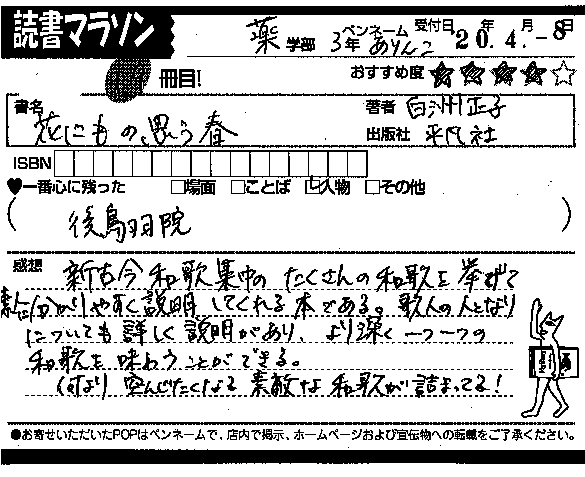 読書マラソン
薬学部 3年 ペンネーム ありんこ 受付日 20年 4.月 -8日
冊目! おすすめ度 ★★★★☆
書名 花にもの思う春
著者 白洲正子
出版社 平凡社
ISBN
♥一番心に残った □場面 □ことば ☑人物 □その他
(後鳥羽院)
感想 新古今和歌集中のたくさんの和歌を挙げて
素人にわかりやすく説明してくれる本である。歌人の人となり
についても詳しく説明があり、より深く一つ一つの
和歌を味わうことができる。
何より空んじたくなる素敵な和歌が詰まってる!
●お寄せいただいたPOPはペンネームで、店内で掲示、ホームページおよび宣伝物への転載をご了承ください。